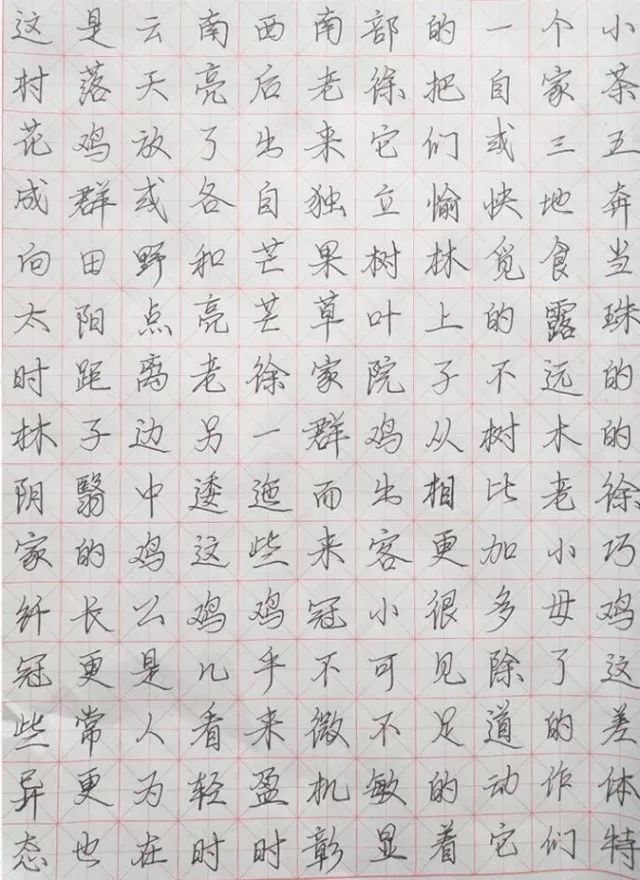 这是云南西南部的一个小
村落天亮后老徐把自家茶
花鸡放了出来它们或三五
成群或各自独立愉快地奔
向田野和芒果树林觅食当
太阳点亮芒草叶上的露珠
时距离老徐家院子不远的
林子边另一群鸡从树木的
阴翳中逶迤而出相比老徐
家的鸡这些来客更加小巧
纤长公鸡鸡冠小很多母鸡
冠更是几乎不可见除了这
些常人看来微不足道的差
异更为轻盈机敏的动作体
态也在时时彰显着它们特